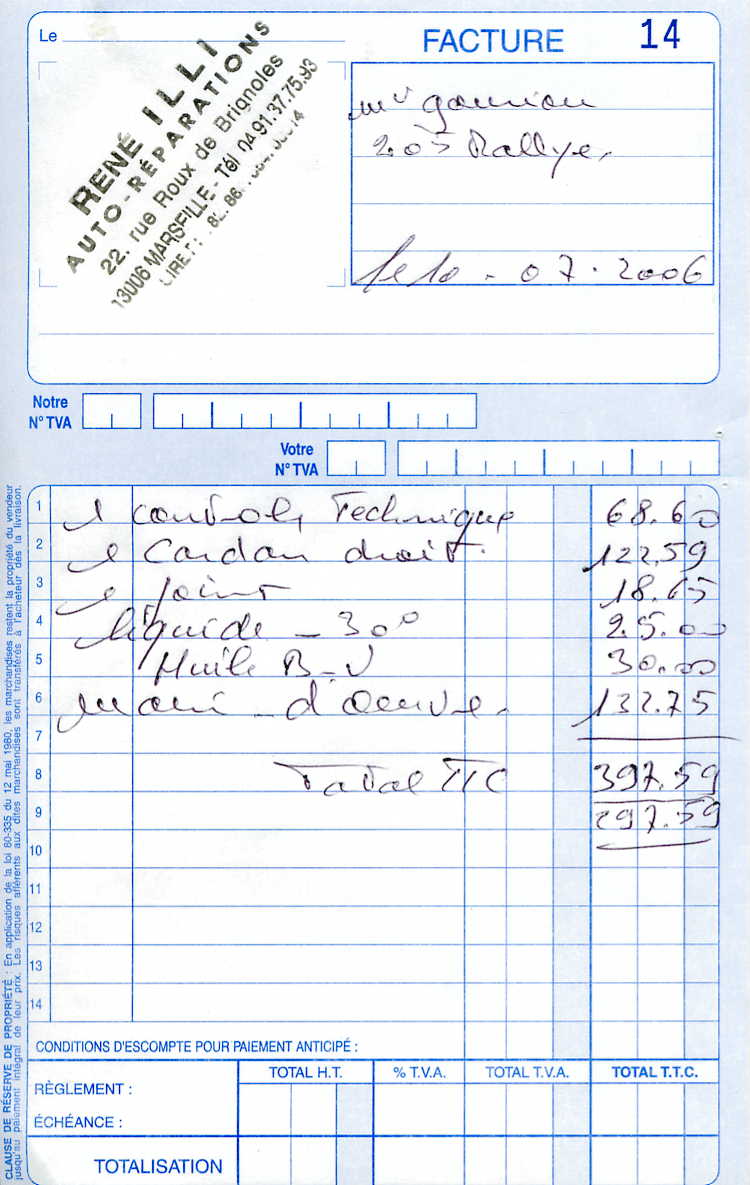 Le
FACTURE 14
RENÉ ILLI
AUTO-RÉPARATIONS
22, rue Roux de Brignoles
13006 MARSEILLE - Tél 04.91.37.75.93
Mr
205 Rallye.
le 10 - 07. 2006
Notre
N° TVA
Votre
N° TVA
1 1 controle Technique 68.60
2 1 Cardan droit. 122.59
3 1 joint 18.65
4 liquide - 30° 25.00
5 Huile B-V 30.00
6 main - d'oeuvre. 132.75
7
8 Total TTC 397.59
9 297.59
10
11
12
13
14
CONDITIONS D'ESCOMPTE POUR PAIEMENT ANTICIPÉ :
TOTAL H.T. % T.V.A. TOTAL T.V.A. TOTAL T.T.C.
RÈGLEMENT :
ÉCHÉANCE :
TOTALISATION
CLAUSE DE RÉSERVE DE PROPRIÉTÉ : En application de la loi 80-335 du 12 mai 1980, les marchandises restent la propriété du vendeur
jusqu'au paiement intégral de leur prix. Les risques afférents aux dites marchandises sont transférés à l'acheteur dès la livraison.